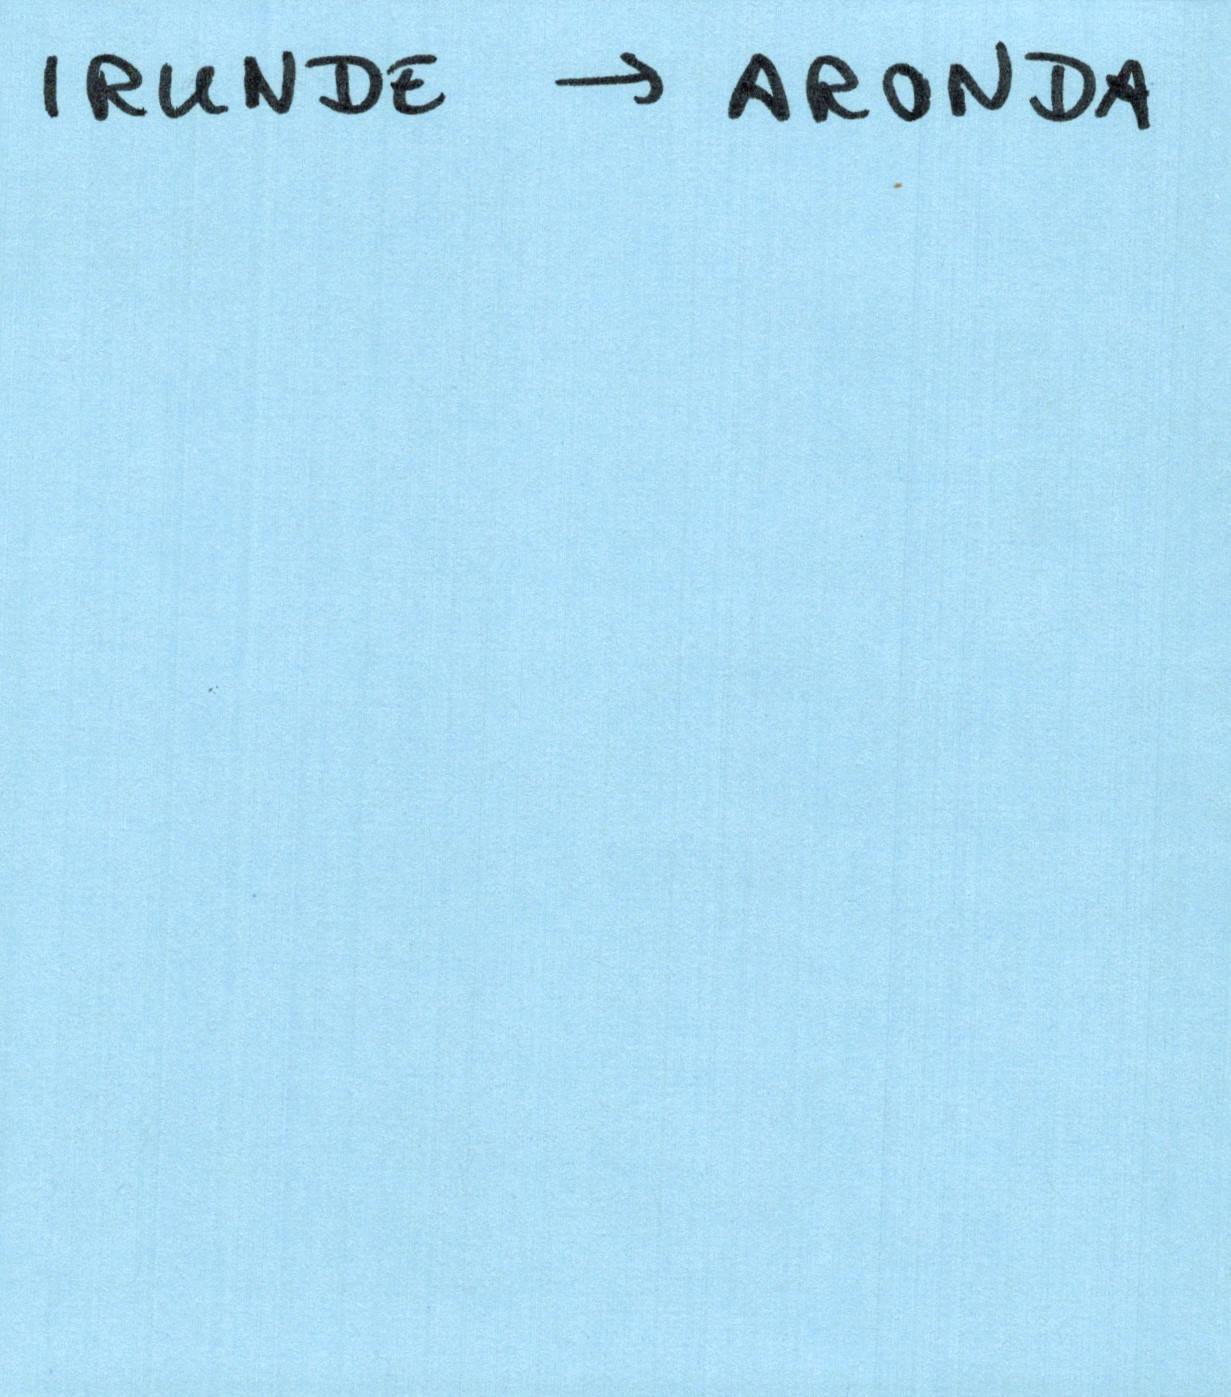 IRUNDE → ARONDA